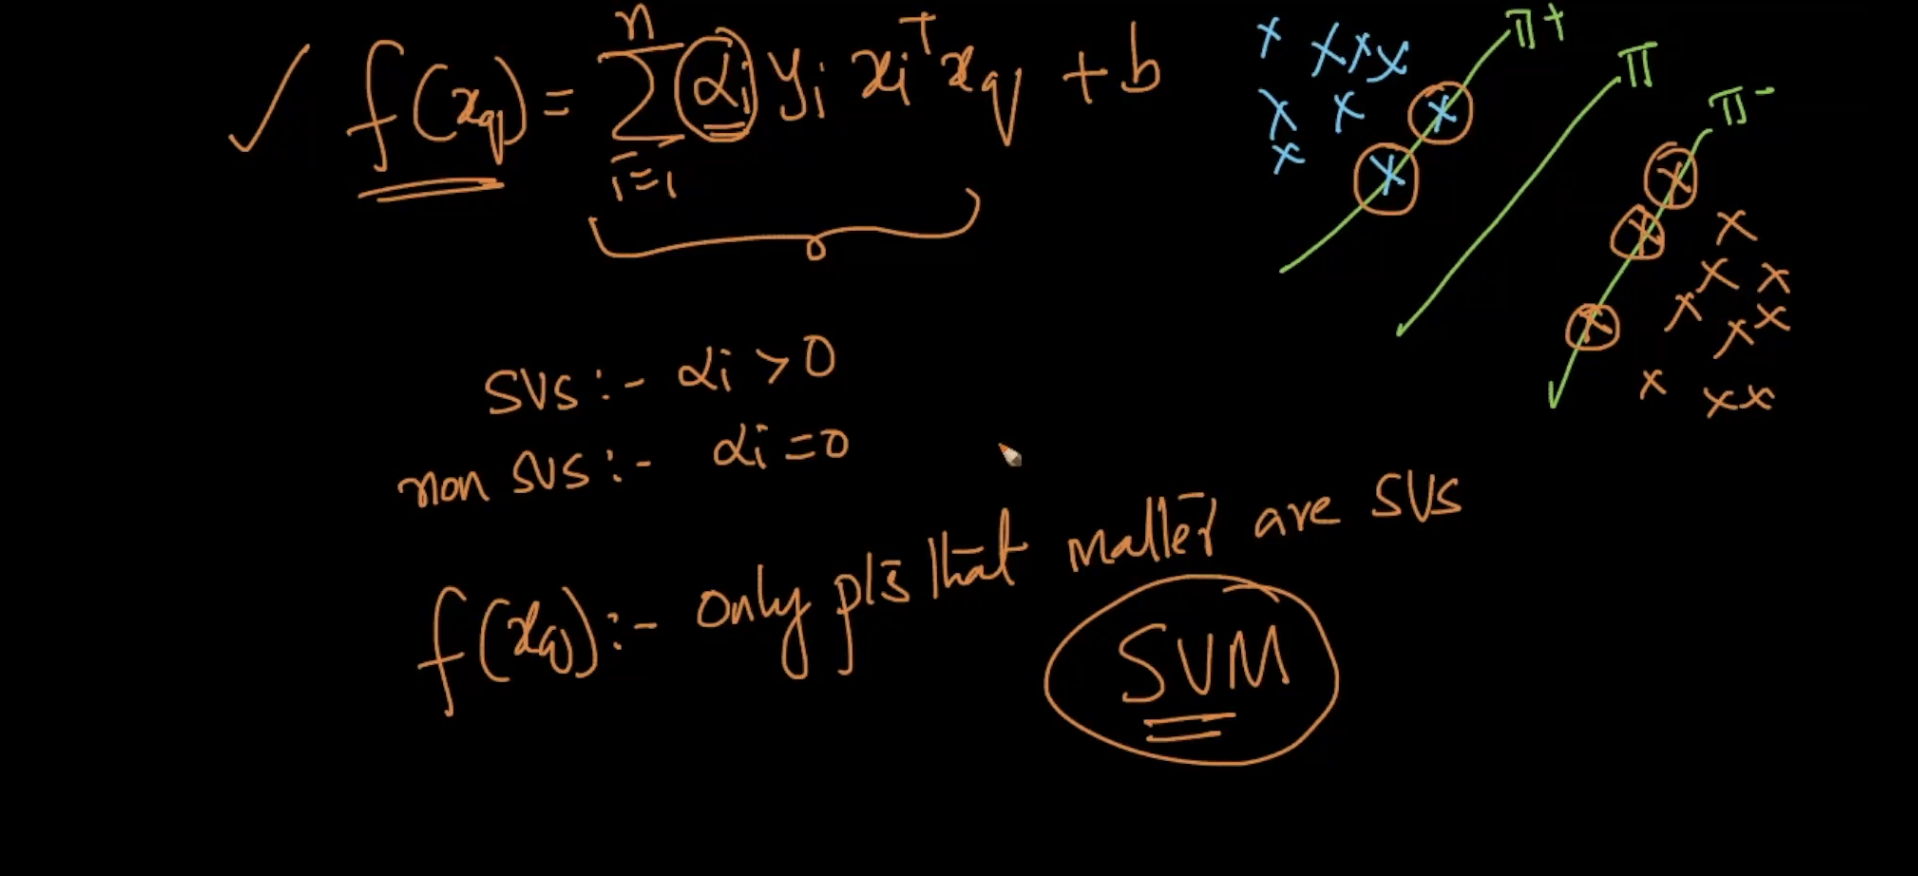 ✓ f(xq) = n Σ i=1 αi yi xiᵀxq + b
π+
π
π-
SVs :- αi > 0
non SVs :- αi = 0
f(xq) :- only pts that matter are SVs
SVM